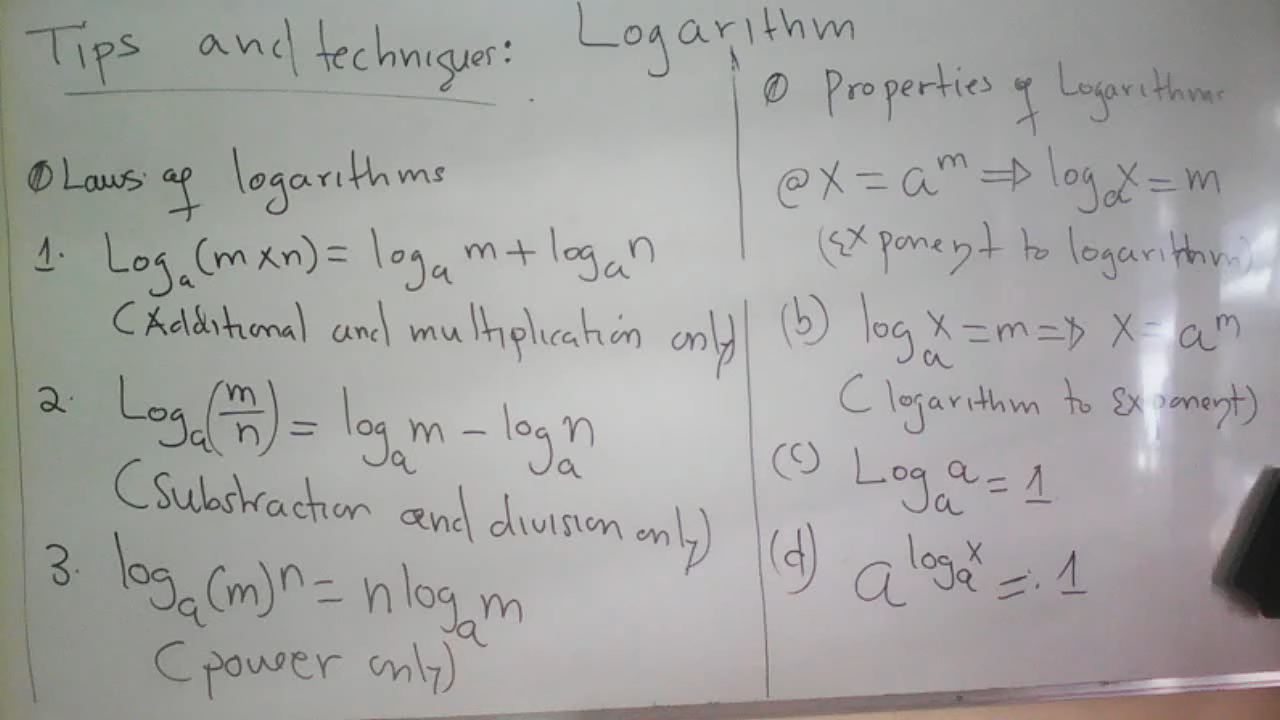 Tips and techniques: Logarithm
① Laws of logarithms
1. Logₐ(m×n) = logₐ m + logₐ n
(Additional and multiplication only)
2. Logₐ(m/n) = logₐ m − logₐ n
(Substraction and division only)
3. logₐ(m)ⁿ = n logₐ m
(power only)
① Properties of Logarithms
(a) X = aᵐ ⇒ logₐ x = m
(Exponent to logarithm)
(b) logₐ x = m ⇒ X = aᵐ
(logarithm to Exponent)
(c) Logₐ a = 1
(d) a^(logₐ x) = 1